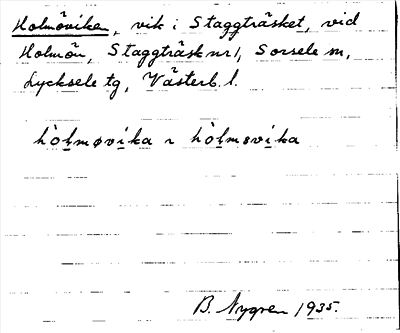 Holmöviken, vik i Staggträsket, vid
Holmön, Staggträsk nr 1, Sorsele sn,
Lycksele tg, Västerb. l.
hòlmøvika ~ hòlmøvika
B. Nygren 1935.